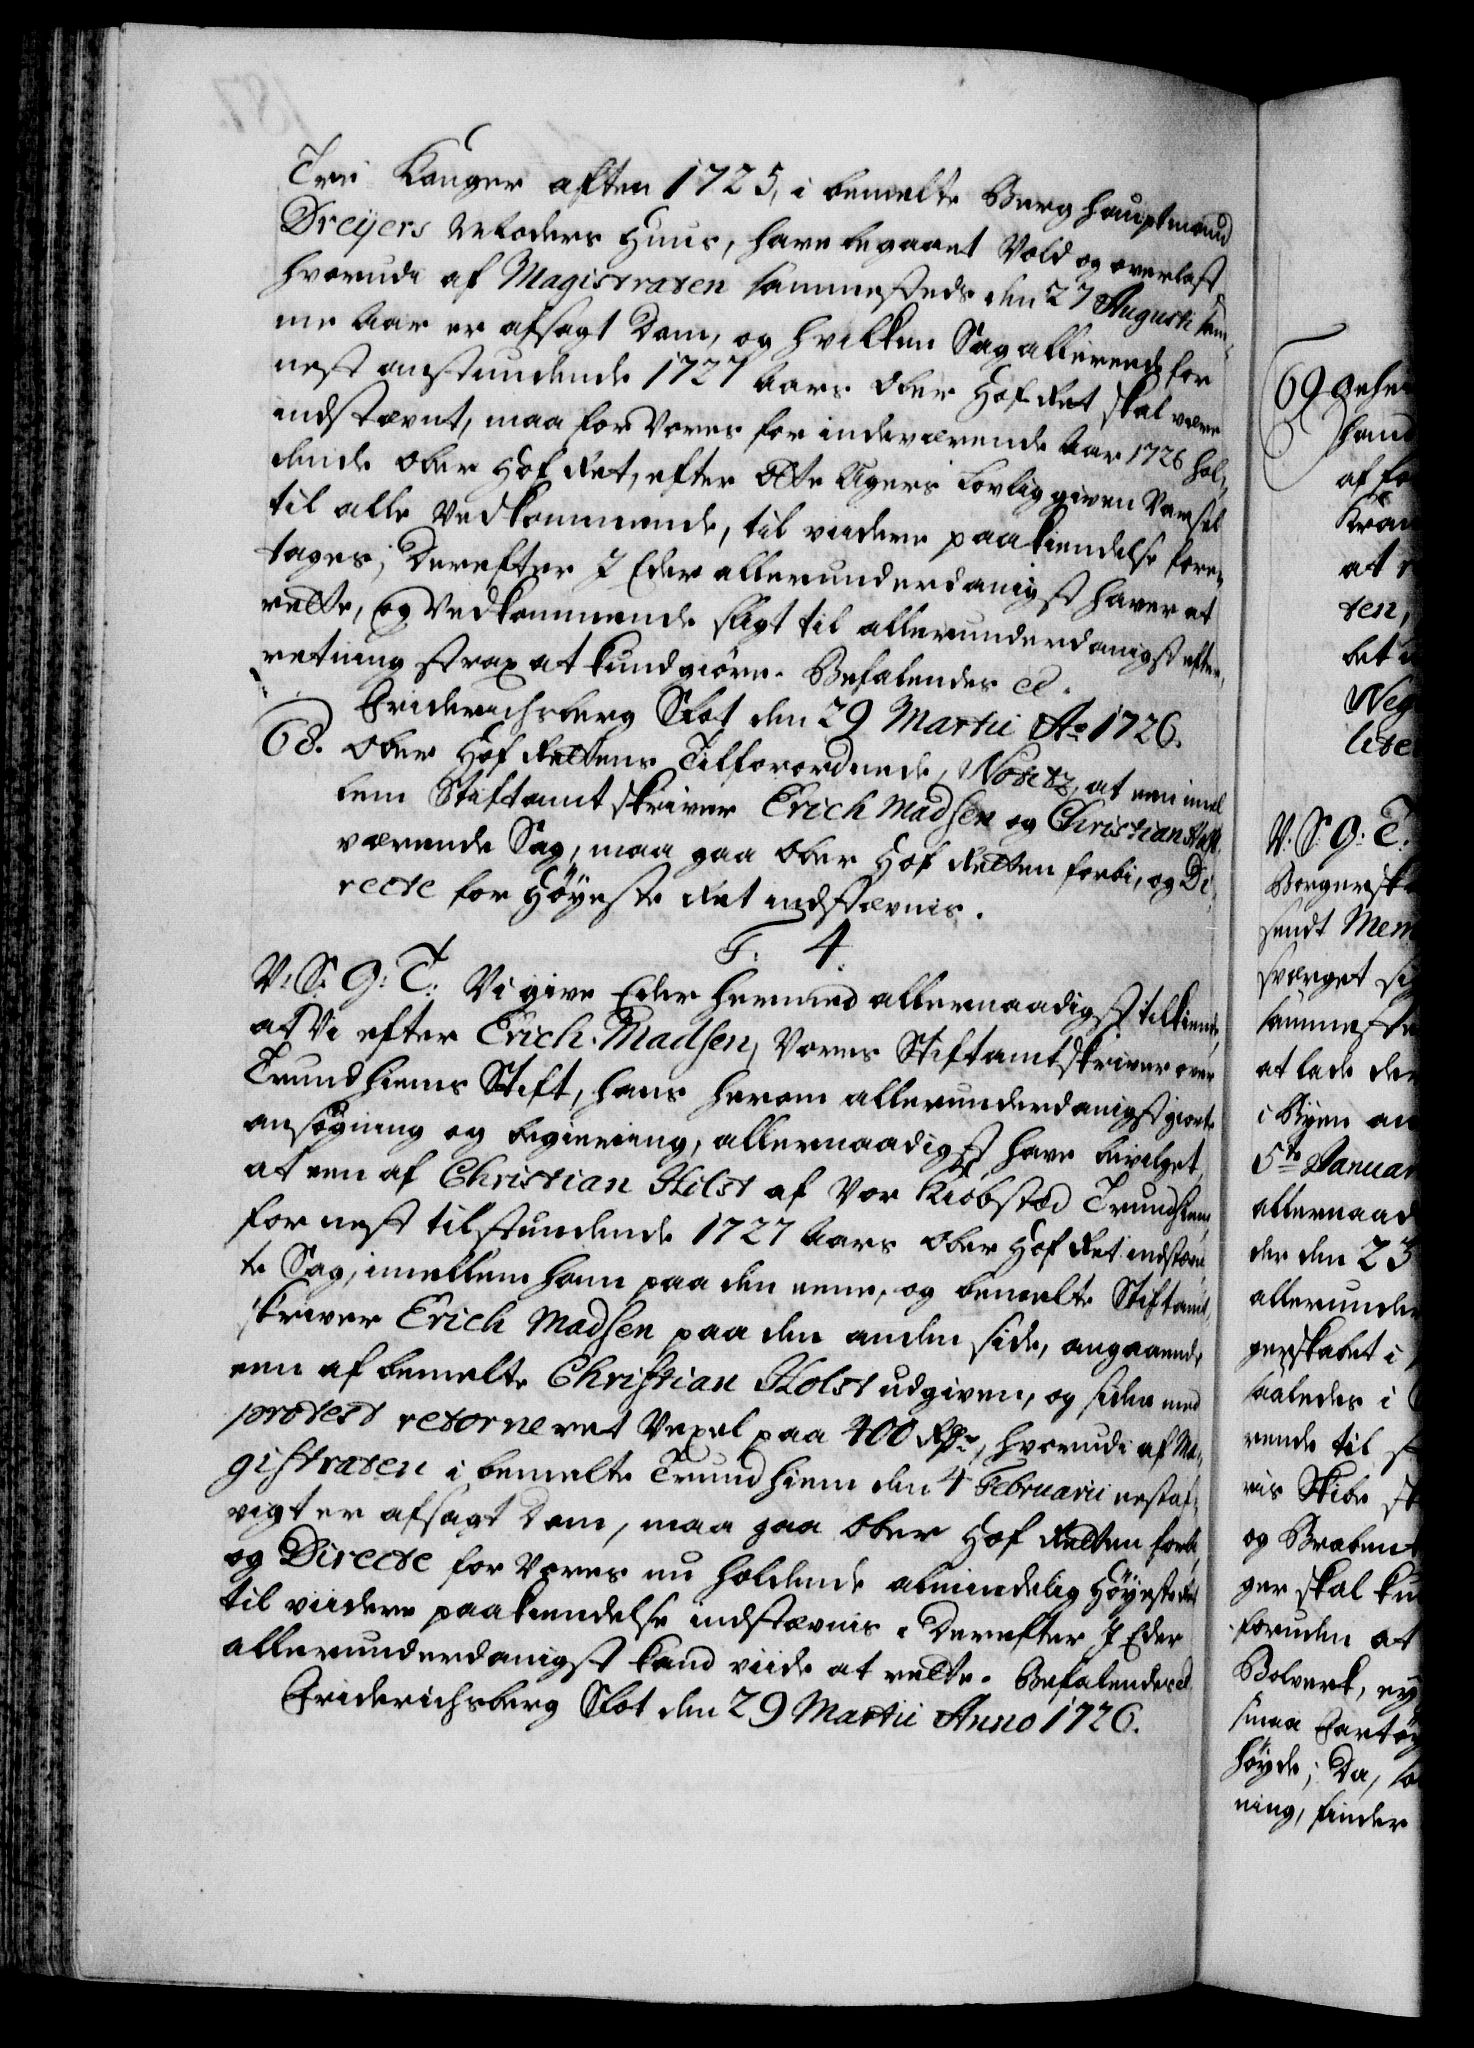 Trei Konger aften 1725, i bemelte Berghauptmand
Dreÿers Moders Huus, have begaaet Vold og overlast
hvorudi af Magistraten sammesteds den 27 Augusti sam-
me Aar er afsagt Dom, og hvilken Sag allereede for
nest anstundende 1727 Aars Ober Hof Ret skal være
indstævnt, maa for Vores for indeværende Aar 1726 hol-
dende Ober Hof Ret, efter Otte Ugers Lovlig given Varsel
til alle Vedkommende, til viidere paakiendelse fore-
tages; Derefter I Eder allerunderdanigst haver at
rette, og Vedkommende sligt til allerunderdanigst efter-
retning strax at kundgiøre. Befalendes etc.
Friderichsberg Slot den 29 Martii Ao 1726.
68. Ober Hof Rettens Tilforordnede, Notetz, at een imel-
lem Stiftamtskriver Erich Madsen og Christian Holst
værende Sag, maa gaa Ober Hof Retten forbi, og Di-
recte for Høyeste Ret indstævnis.
F. 4.
V: S: G: T: Vi give Eder hermed allernaadigst tilkiende,
at Vi efter Erich Madsen, Vores Stiftamtskriver over
Trundhiems Stift, hans herom allerunderdanigst giorte
ansøgning og begiering, allernaadigst have bevilget,
at een af Christian Holst af Vor Kiøbsted Trundhiem,
for nest tilstundende 1727 Aars Ober Hof Ret indstævn-
te Sag, imellem ham paa den eene, og bemelte Stiftamt-
skriver Erich Madsen paa den anden side, angaaende
een af bemelte Christian Holst udgiven, og siden med
protest retorneret Vexel paa 400 Rdr, hvorudi af Ma-
gistraten i bemelte Trundhiem den 4 Februarii nestaf-
vigt er afsagt Dom, maa gaa Ober Hof Retten forbi,
og Directe for Vores nu holdende almindelig Høyeste Ret
til viidere paakiendelse indstævnis. Derefter I Eder
allerunderdanigst kand viide at rette. Befalendes etc.
Friderichsberg Slot den 29 Martii Anno 1726.
69
hand
af
at
ten,
bet
V: S: G: T:
Borgersk
sendt Mem
sværget sig
samme
at lade den
i Byen an
5te Januar
allernaad
der den 23
allerunder
gerskabet i
saaledes i
rende til
ris Skibe
og
ger skal
foruden at
Bolverk,
smaa Fartøy
høyde; Da,
ning, finder